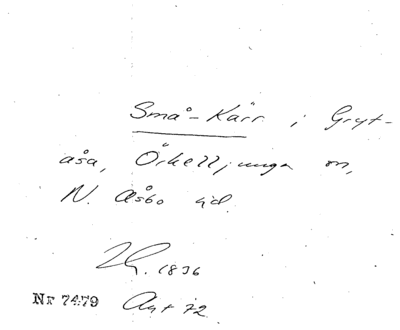 Små-Kärr i Gryt-
åsa, Örkelljunga sn,
N. Åsbo hd.
1836
Nr 7479 Akt 72